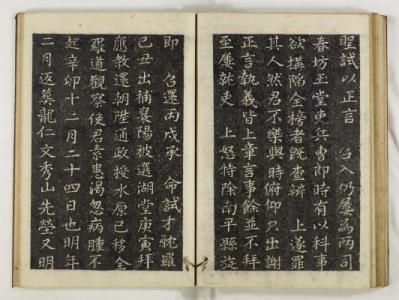 聖試以正言　召入仍屢爲兩司
春坊玉堂吏兵曹卽時有以科事
欲搆陷全榜者旣查辨　上遂罪
其人然君不樂與時俯仰只出謝
正言執義皆上章言事餘並不拜
至屢就吏　上怒特除南平縣旋
卽　召還丙戌承　命試才耽羅
己丑出補襄陽被選湖堂庚寅拜
應敎還朝陞通政授水原已移全
羅道觀察使君素患渴忽病腫不
起辛卯十二月二十四日也明年
二月返葬龍仁文秀山先塋又明